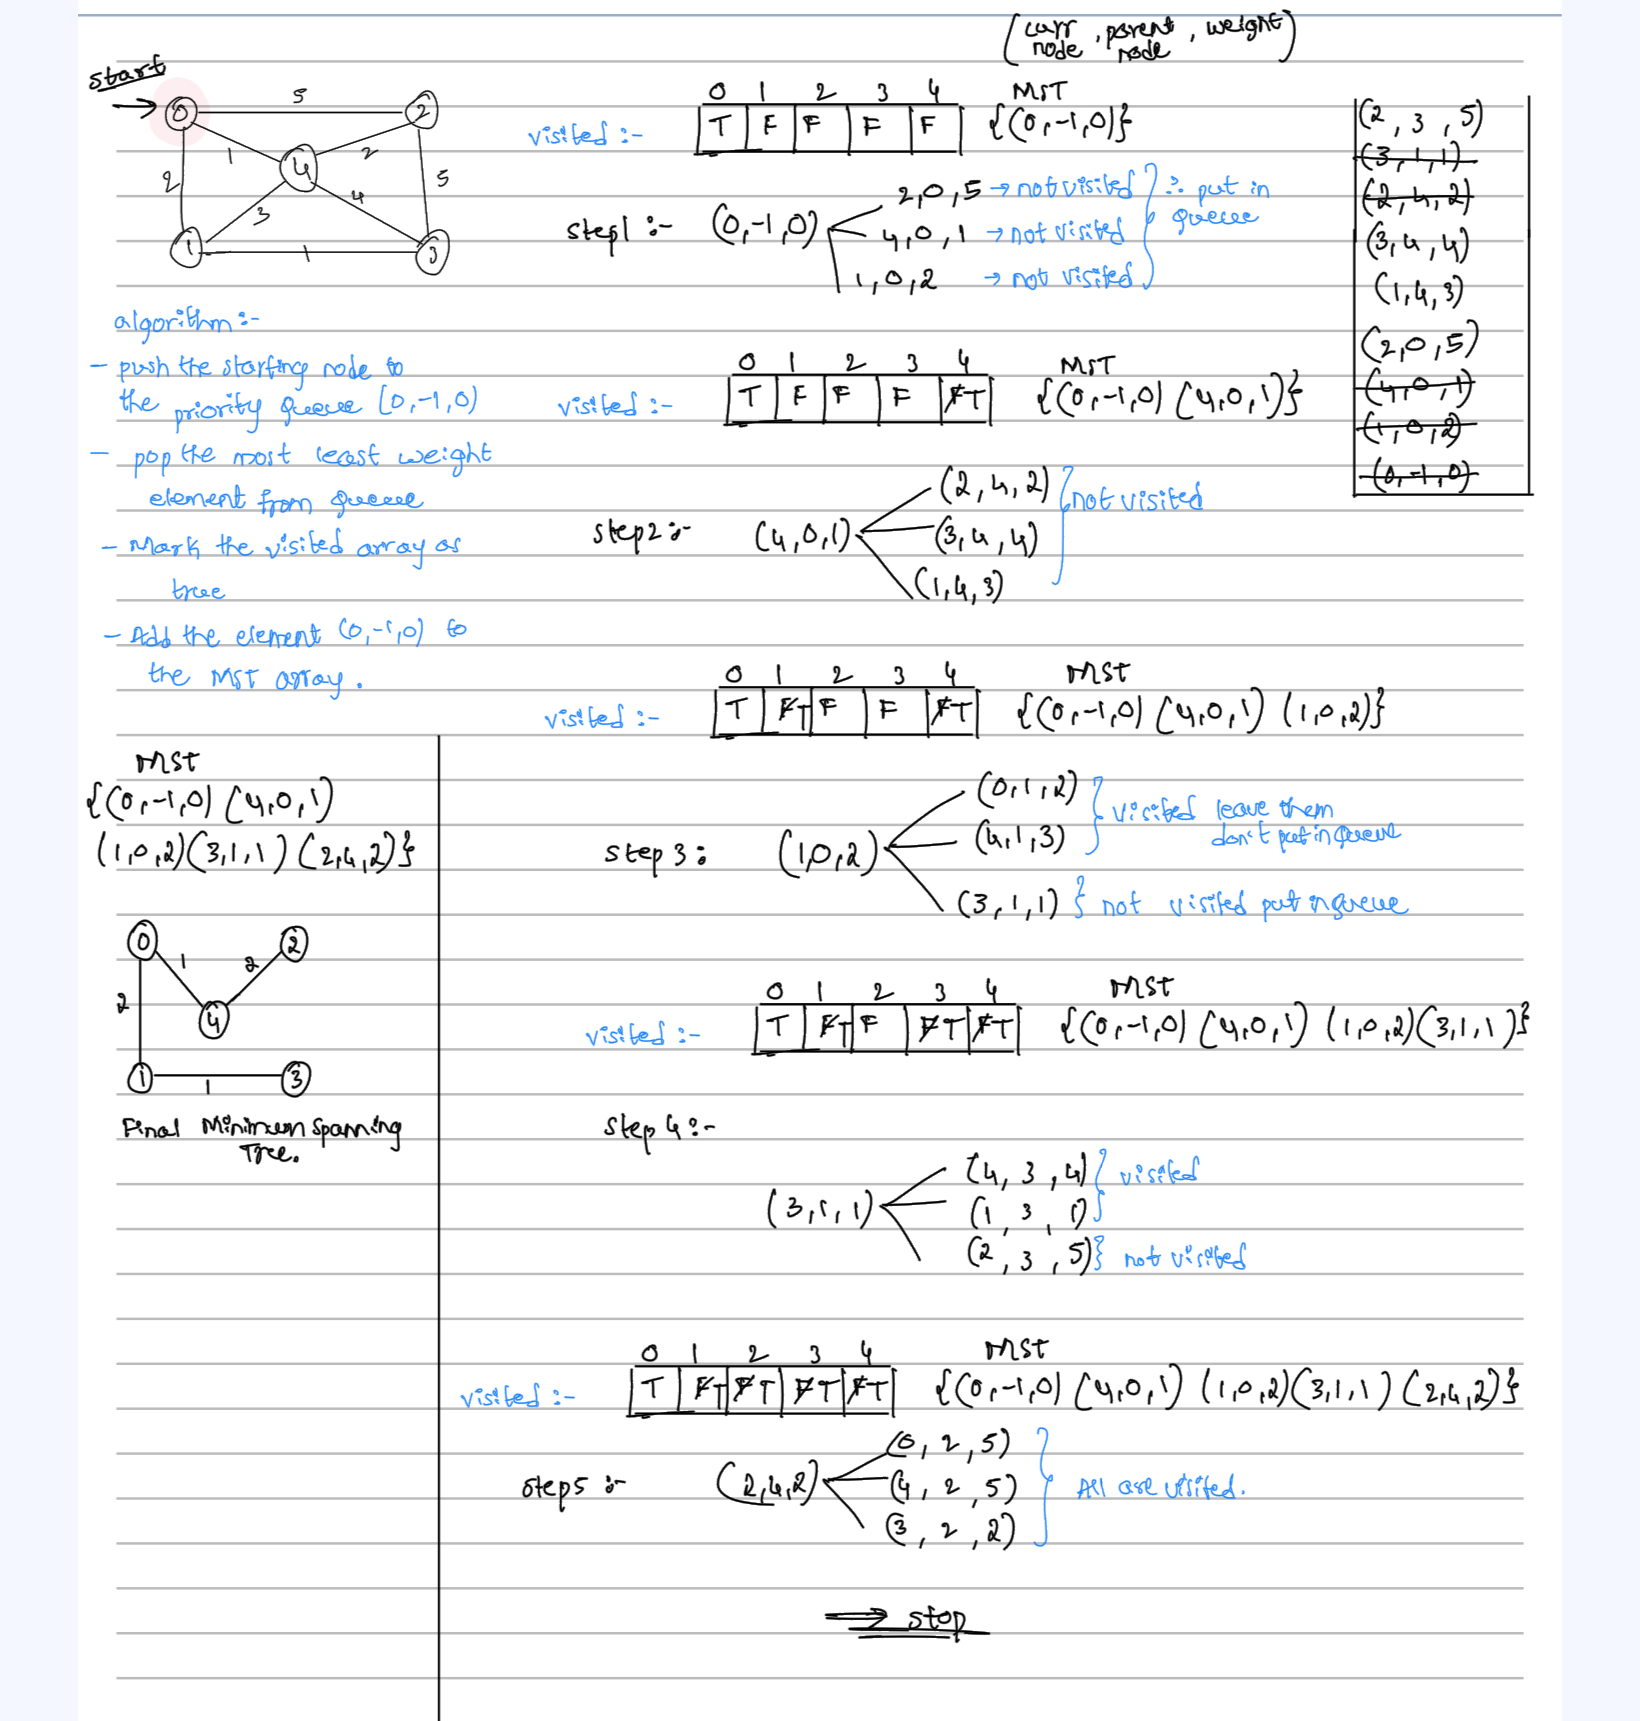 (curr node, parent node, weight)
start
0 5 2
1 2
4
2 5
3 4
1 1 3
0 1 2 3 4 MST
visited :- T F F F F {(0,-1,0)}
step1 :- (0,-1,0)
2,0,5 → not visited
4,0,1 → not visited
1,0,2 → not visited
∴ put in queue
(2, 3, 5)
(3,1,1)
(2,4,2)
(3,4,4)
(1,4,3)
(2,0,5)
(4,0,1)
(1,0,2)
(0,-1,0)
algorithm :-
- push the starting node to
the priority queue (0,-1,0)
- pop the most least weight
element from queue
- Mark the visited array as
true
- Add the element (0,-1,0) to
the MST array.
0 1 2 3 4 MST
visited :- T F F F FT {(0,-1,0) (4,0,1)}
step2 :- (4,0,1)
(2,4,2)
(3,4,4)
(1,4,3)
not visited
0 1 2 3 4 MST
visited :- T FT F F FT {(0,-1,0) (4,0,1) (1,0,2)}
step 3: (1,0,2)
(0,1,2)
(4,1,3)
visited leave them
don't put in queue
(3,1,1) } not visited put in queue
0 1 2 3 4 MST
visited :- T FT F FT FT {(0,-1,0) (4,0,1) (1,0,2)(3,1,1)}
step 4 :-
(3,1,1)
(4, 3, 4)
(1, 3, 1)
visited
(2, 3, 5)} not visited
0 1 2 3 4 MST
visited :- T FT FT FT FT {(0,-1,0) (4,0,1) (1,0,2)(3,1,1) (2,4,2)}
steps5 :- (2,4,2)
(0, 2, 5)
(4, 2, 5)
(3, 2, 2)
All are visited.
⇒ stop
MST
{(0,-1,0) (4,0,1)
(1,0,2)(3,1,1) (2,4,2)}
0 2
1 2
2 4
1 1 3
Final Minimum Spanning
Tree.